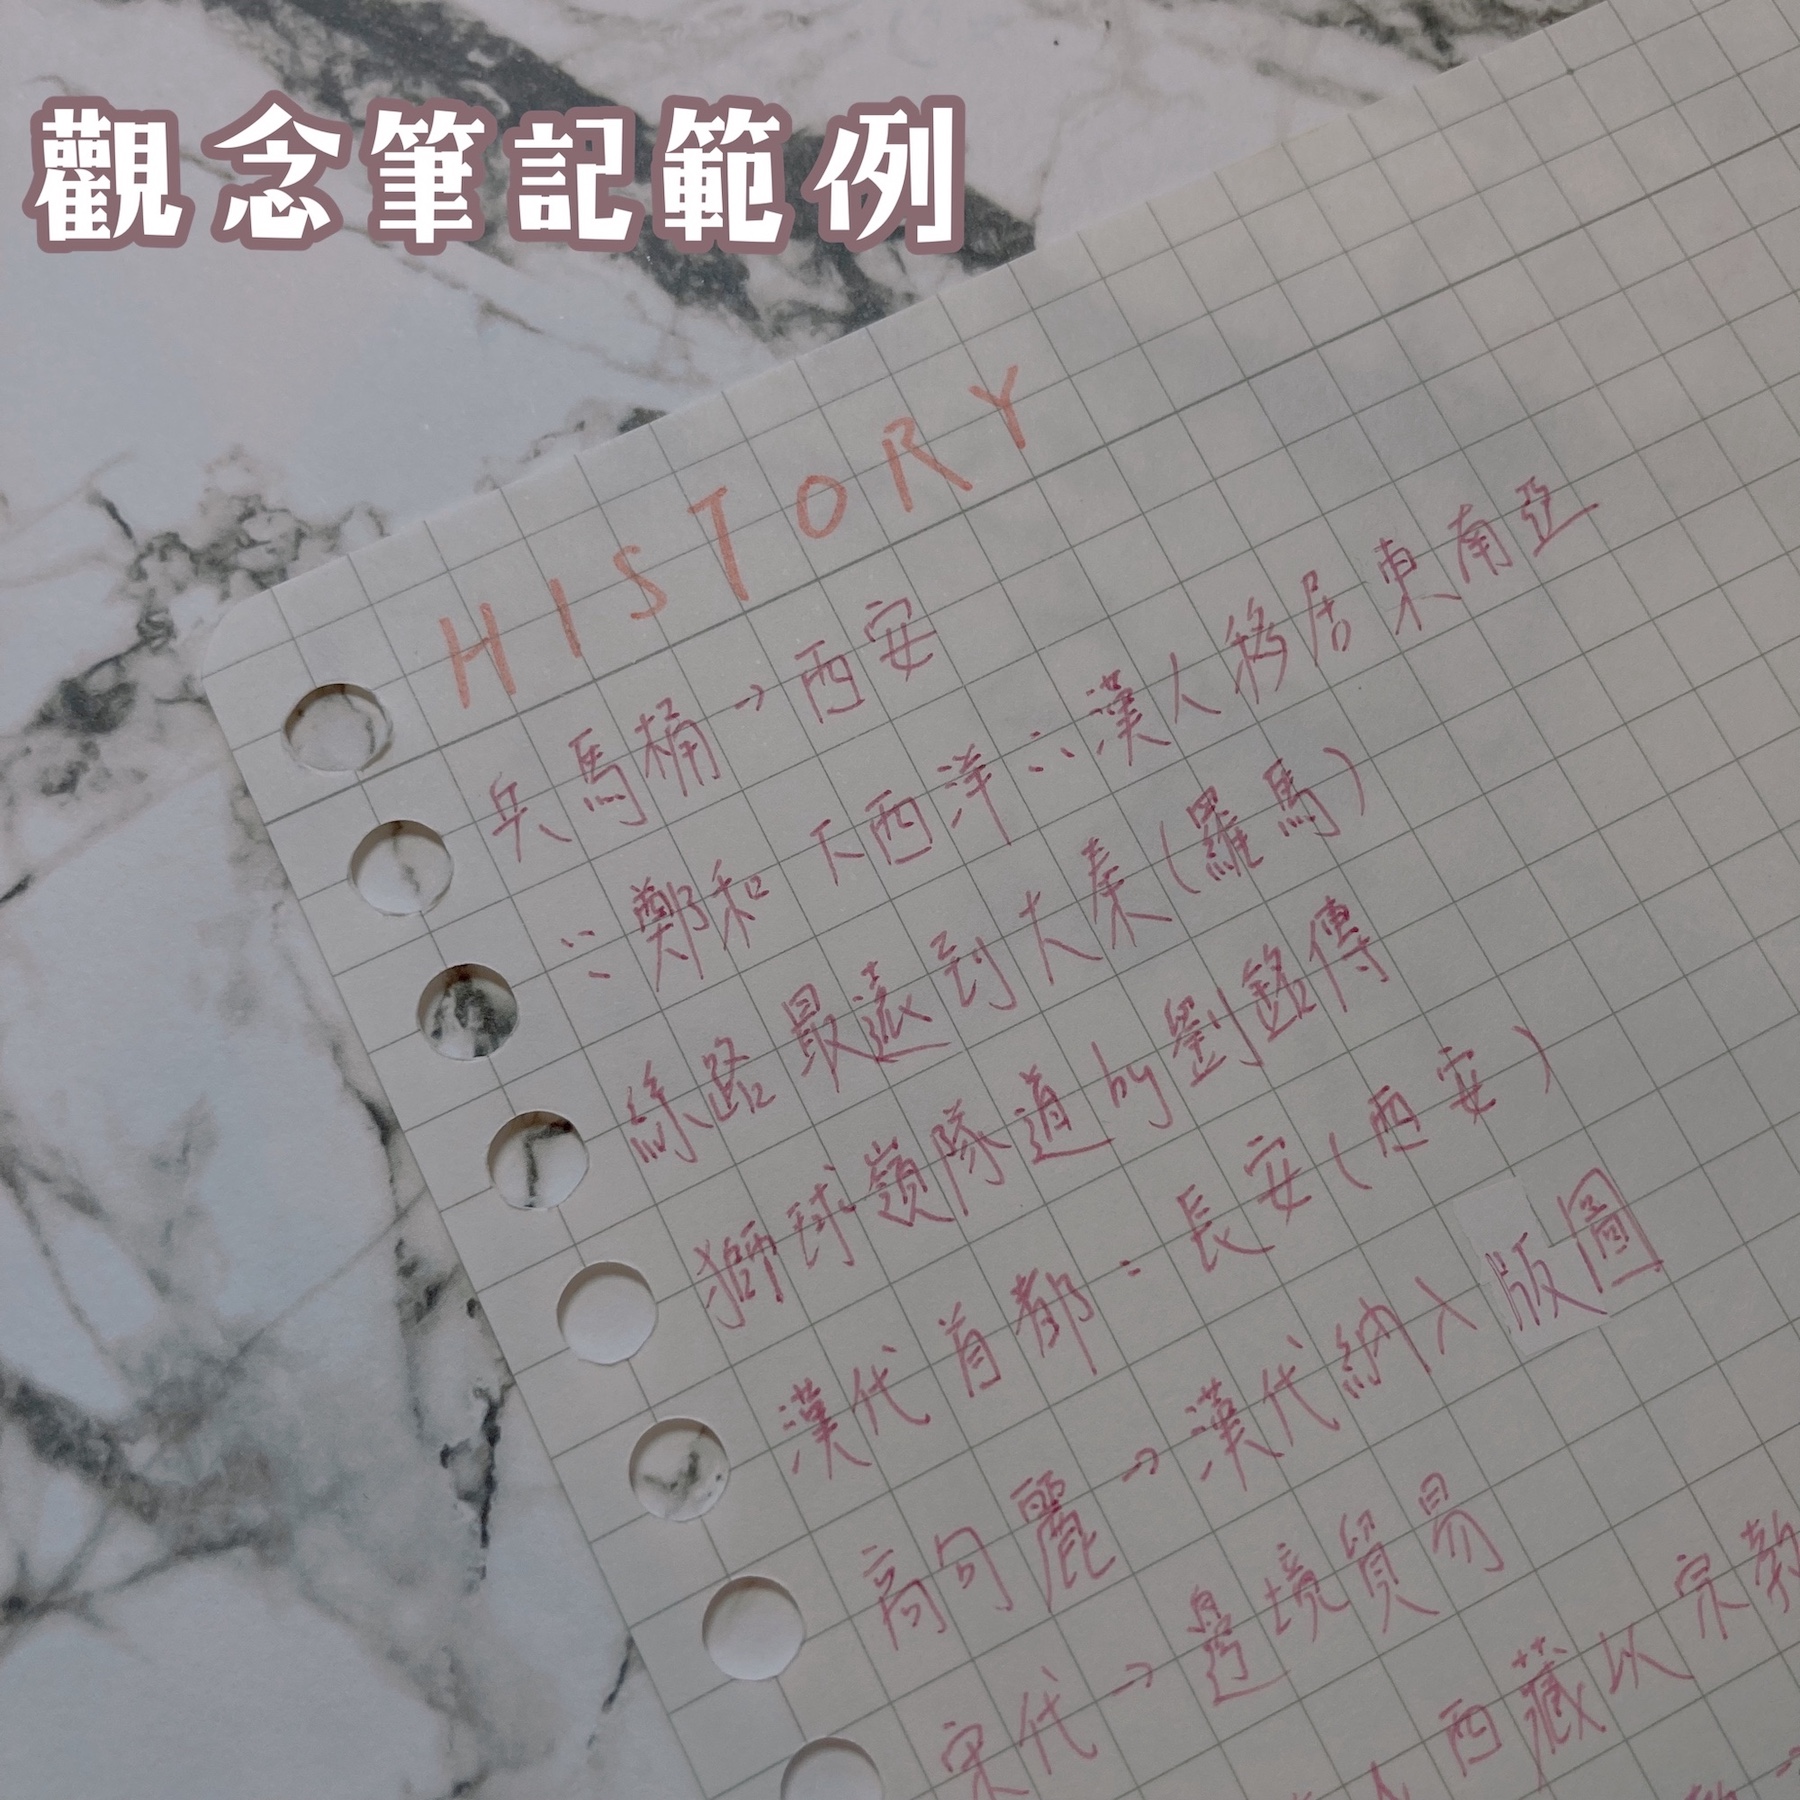 觀念筆記範例
HISTORY
兵馬桶→西安
∵鄭和下西洋∴漢人移居東南亞
絲路最遠到大秦(羅馬)
獅球嶺隊道by劉銘傳
漢代首都:長安(西安)
高句麗→漢代納入版圖
宋代→邊境貿易
人西藏以宗教